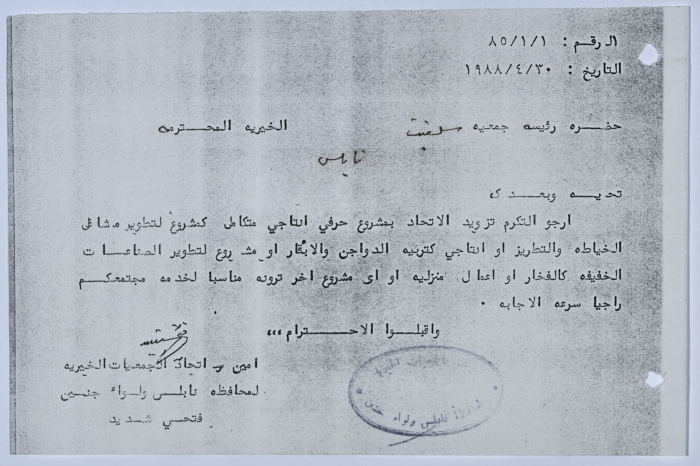 الرقم : ٨٥/١/١
التاريخ : ١٩٨٨/٤/٣٠
حضره رئيسه جمعيه سلفيت الخيريه المحترمه
نابلس
تحيه وبعد ،
ارجو التكرم تزويد الاتحاد بمشروع حرفي انتاجي متكامل كمشروع لتطوير مشاغل
الخياطه والتطريز او انتاجي كتربيه الدواجن والابقار او مشروع لتطوير الصناعات
الخفيفه كالفخار او اعمال منزليه او اى مشروع اخر ترونه مناسبا لخدمه مجتمعكم
راجيا سرعه الاجابه .
واقبلوا الاحترام ,,,
امين سر اتحاد الجمعيات الخيريه
لمحافظه نابلس ولواء جنين
فتحي شديد
الجمعيات الخيرية
لمحافظة نابلس ولواء جنين